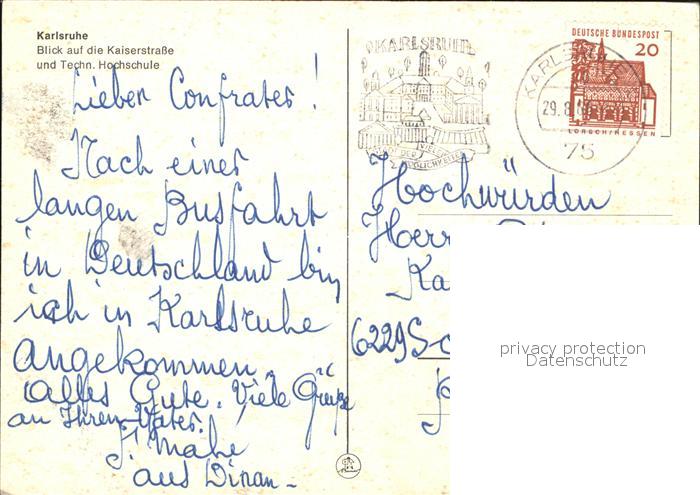 Karlsruhe
Blick auf die Kaiserstraße
und Techn. Hochschule
Lieber Confrater!
Nach einer
langen Busfahrt
in Deutschland bin
ich in Karlsruhe
angekommen.
Alles Gute. Viele Grüße
an Ihren Vater.
Mahe
aus Dinan-
KARLSRUHE
STADT DER VIELEN
MÖGLICHKEITEN
KARLSRUHE
29.8.
75
DEUTSCHE BUNDESPOST
20
LORSCH/HESSEN
Hochwürden
Herr
Ka
6229
privacy protection
Datenschutz